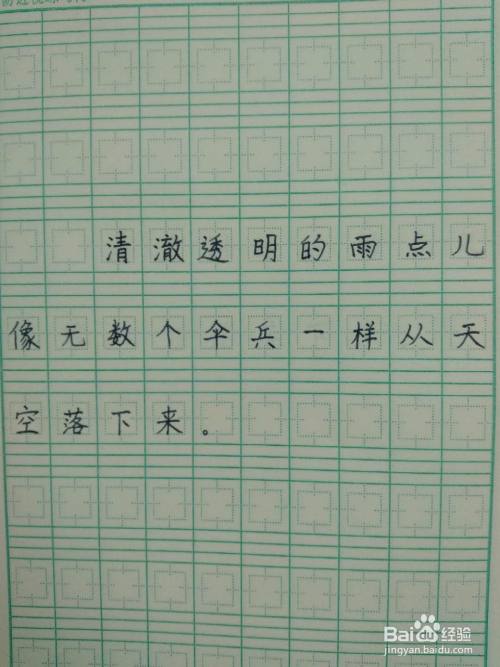 清澈透明的雨点儿
像无数个伞兵一样从天
空落下来。
Baidu经验
jingyan.baidu.com